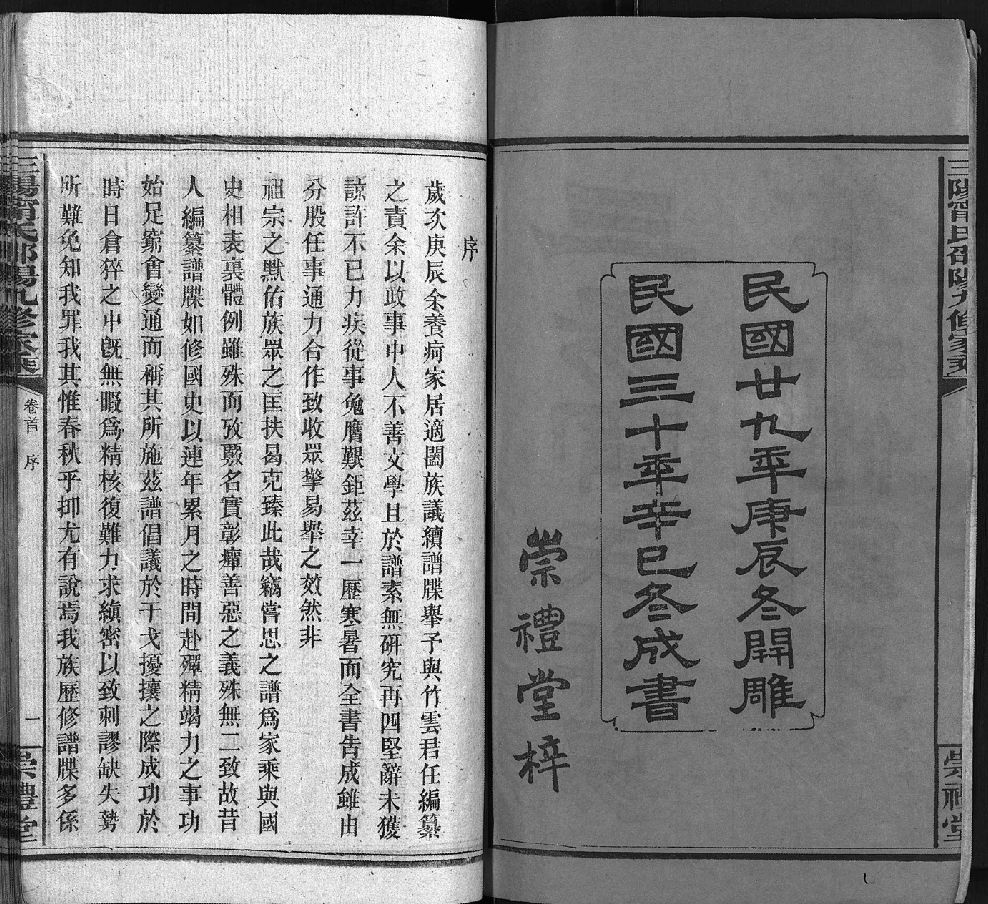 三陽甯氏邵陽九修家乘
崇禮堂
民國廿九年庚辰冬開雕
民國三十年辛巳冬成書
崇禮堂梓
序
歲次庚辰余養疴家居適闔族議續譜牒舉予與竹雲君任編纂
之責余以政事中人不善文學且於譜素無研究再四堅辭未獲
諒許不已力疾從事兔膺艱鉅茲幸一歷寒暑而全書告成雖由
分股任事通力合作致收眾擎易舉之效然非
祖宗之默佑族眾之匡扶曷克臻此哉竊嘗思之譜為家乘與國
史相表裏體例雖殊而攷覈名實彰癉善惡之義殊無二致故昔
人編纂譜牒如修國史以連年累月之時間赴殫精竭力之事功
始足窮會變通而稱其所施茲譜倡議於干戈擾攘之際成功於
時日倉猝之中既無暇為精核復難力求縝密以致刺謬缺失勢
所難免知我罪我其惟春秋乎抑尤有說焉我族歷修譜牒多係
三陽甯氏邵陽九修家乘
卷首 序
一
崇禮堂